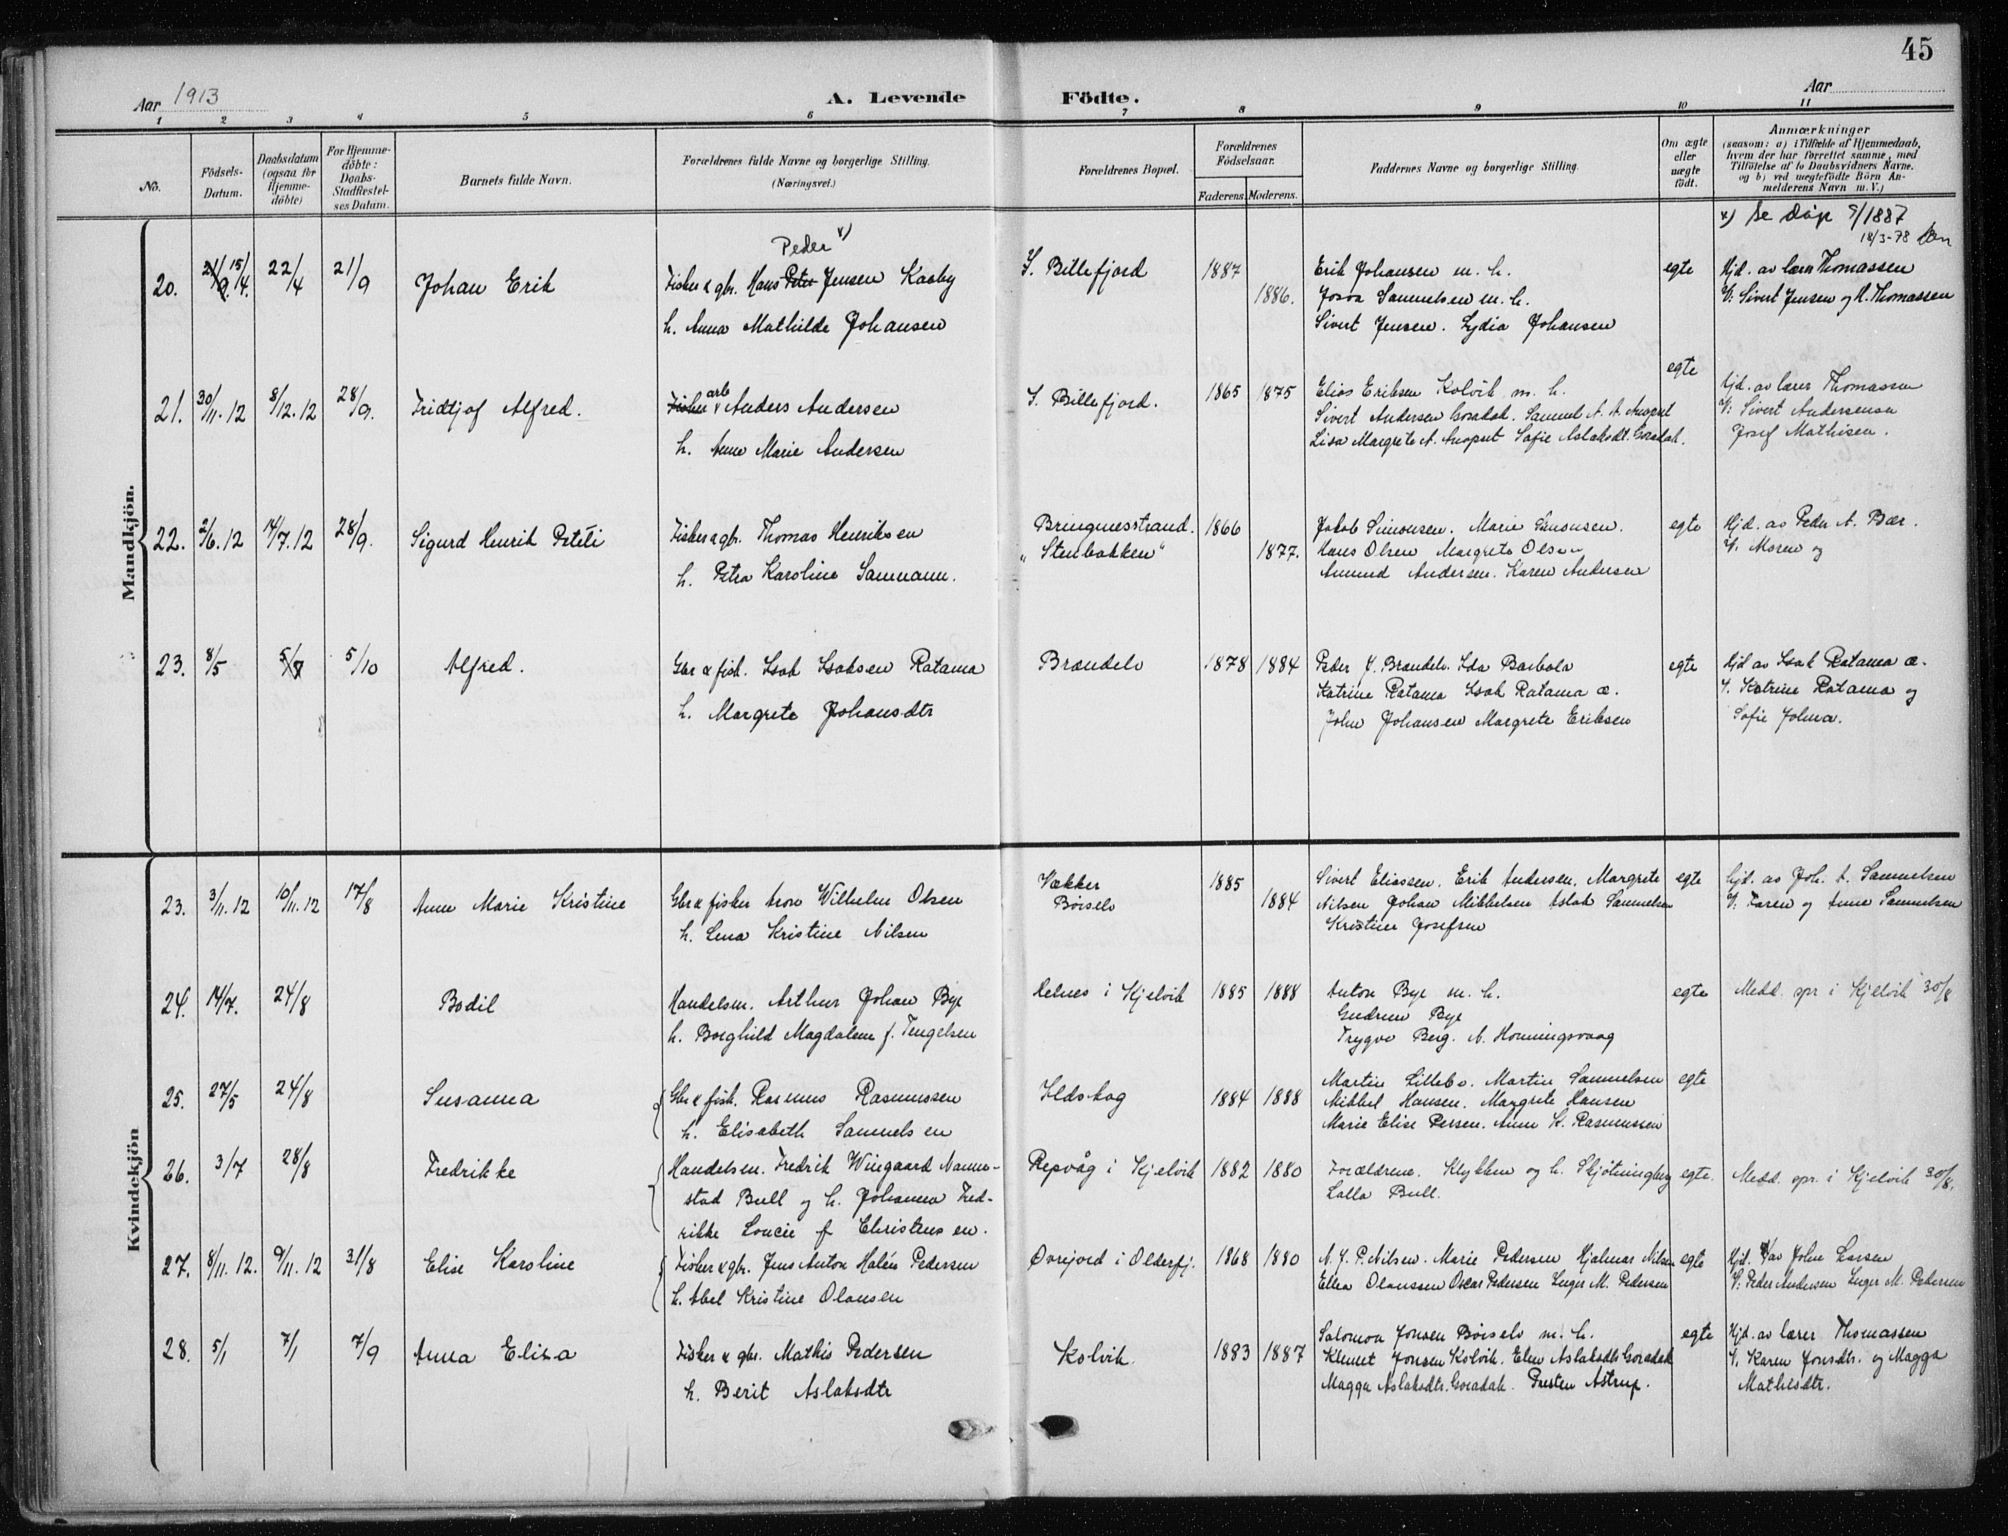 45
Aar 1913
A. Levende Födte.
Aar
1 2 3 4 5 6 7 8 9 10 11
No.
Födsels-
Datum.
Daabsdatum
(ogsaa for
Hjemme-
döbte)
For Hjemme-
döbte:
Daabs-
Stadfæstel-
ses Datum.
Barnets fulde Navn.
Forældrenes fulde Navne og borgerlige Stilling.
(Næringsvei.)
Forældrenes Bopæl.
Forældrenes
Födselsaar.
Faderens. Moderens.
Faddernes Navne og borgerlige Stilling.
Om ægte
eller
uægte
födt.
Anmærkninger
(saasom: a) i Tilfælde af Hjemmedaab,
hvem der har forrettet samme, med
Tilföielse af to Daabsvidners Navne.
og b) ved uægtefödte Börn An-
melderens Navn m. V.)
Mandkjön.
x) Se Døpe 5/1887
18/3-78
Peder x)
20. 21/9. 15/4. 22/4 21/9 Johan Erik Fisker & gbr. Hans Peter Jensen Kaaby S. Billefjord 1887 Erik Johansen m. h. egte Hjd. av lærer Thomassen
1886. Josva Samuelsen m. h. V: Sivert Jensen og H. Thomassen
h. Anna Mathilde Johansen Sivert Jensen. Lydia Johansen
21. 30/11.12 8/12.12 28/9. Fridtjof Alfred. Fisker arb. Anders Andersen S. Billefjord. 1865 1875 Elias Eriksen Kolvik m. h. egte Hjd. av lærer Thomassen
Sivert Andersen Goradak. Samuel A. A. Anopset V: Sivert Andersensen
h. Anne Marie Andersen Lisa Margrete A. Anopset Sofie Aslaksdt. Goradak. Josef Mathisen.
22. 2/6.12 14/7.12 28/9. Sigurd Henrik Peteli Fisker & gbr. Thomas Henriksen Bringnesstrand. 1866 Jakob Simonsen. Marie Simonsen. egte Hjd. av Peder A. Bær.
"Stenbakken" 1877. Hans Olsen Margrete Olsen V. Moren og
h. Petra Karoline Sammann. Amund Andersen. Karen Andersen
23. 8/5 5/7 5/10 Alfred. Gbr & fisk. Isak Isaksen Ratama Brændelv 1878 1884 Peder J. Brændelv. Ida Barbola egte Hjd av Isak Ratama æ.
Katrine Ratama Isak Ratama æ. V. Katrine Ratama og
h. Margrete Johansdtr John Johansen Margrete Eriksen Sofie Johna.
Kvindekjön
23. 3/11.12 10/11.12 17/8 Anne Marie Kristine Gbr & fisker Aron Wilhelm Olsen Vækker 1885 Sivert Eliassen. Erik Andersen. Margrete egte Hjd. av Joh. A. Samuelsen
Børselv 1884 Nilsen Johan Mikkelsen Aslak Samuelsen V: Karen og Anne Samuelsen
h. Lena Kristine Nilsen Kristine Josefsen
24. 14/7. 24/8 Bodil Handelsm. Arthur Johan Bye Relnes i Kjelvik 1885 1888 Anton Bye m. h. egte Medd. spr i Kjelvik 30/8
Gudrun Bye
h. Borghild Magdalene f. Tengelsen Trygve Berg. A. Honningsvaag
25. 27/5 24/8 Susanna Gbr & fisk. Rasmus Rasmussen Ildskog 1884 1888 Martin Lillebo. Martin Samuelsen egte
Mikkel Hansen. Margrete Hansen
h. Elisabeth Samuelsen Marie Elise Persen. Anne K. Rasmussen
26. 3/7 28/8 Fredrikke Handelsm. Fredrik Wiegaard Nanne- Repvåg i Kjelvik 1882 1880 Forældrene. Klykken og h. Skjötningberg egte. Medd. spr. i Kjelvik 30/8.
stad Bull og h. Johanna Fred- Lalla Bull.
rikke Loucie f. Christensen.
27. 8/11.12. 9/11.12 31/8 Elise Karoline Fisker & gbr. Jens Anton Halén Pedersen Ørrejord i Olderfj. 1868 1880 N. J. P. Nilsen. Marie Pedersen Hjalmar Nilsen egte Hjd. av John Larsen
h. Abel Kristine Olausen Ellen Olaussen Oskar Pedersen Inger M. Pedersen V: Peder Andersen Inger M. Pedersen
28. 5/1 7/1 7/9 Anna Elisa Fisker & gbr. Mathis Pedersen Kolvik. 1883 1887 Salomon Jonsen Børselv m. h. egte Hjd. av lærer Thomassen
Klemet Jonsen Kolvik. Elen Aslaksdtr Goradak V. Karen Jonsdtr. og Magga
h. Berit Aslaksdtr Magga Aslaksdtr. Goradak. Presten Astrup. Mathisdtr.